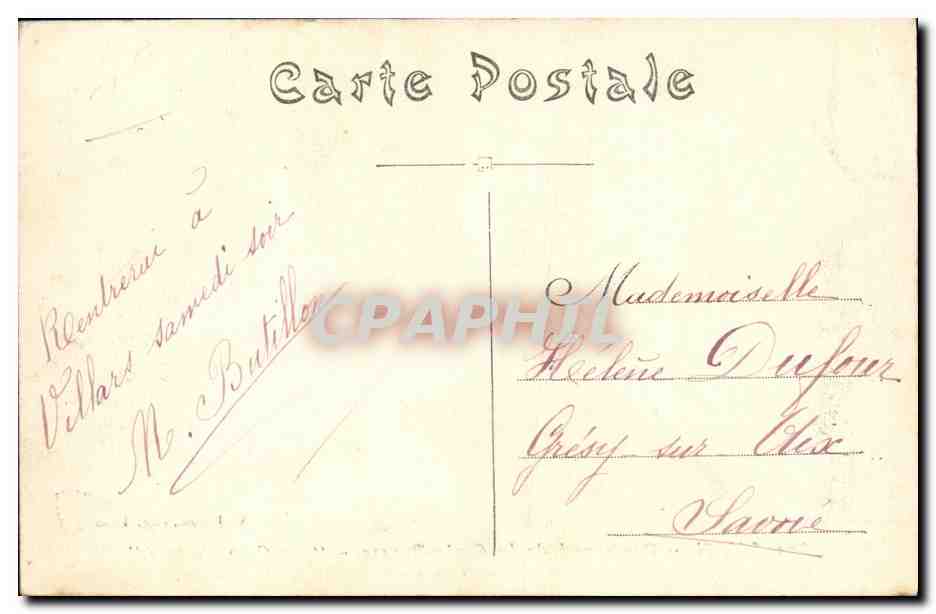 Carte Postale
Rentrerai à
Villars samedi soir
M. Butillon
Mademoiselle
Hélène Dufour
Grésy sur Aix
Savoie
CPAPHIL